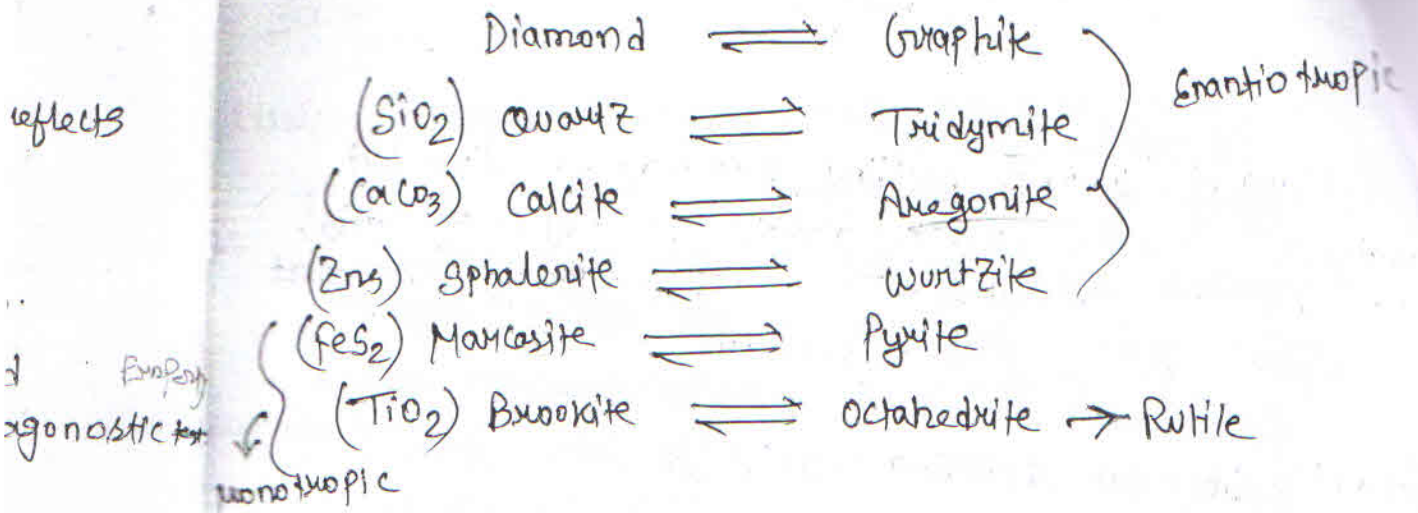 Diamond ⇌ Graphite
Enantiotropic
reflects
(SiO2) Quartz ⇌ Tridymite
(CaCO3) Calcite ⇌ Aragonite
(ZnS) Sphalerite ⇌ Wurtzite
(FeS2) Marcasite ⇌ Pyrite
(TiO2) Brookite ⇌ Octahedrite → Rutile
agonostic test
monotropic